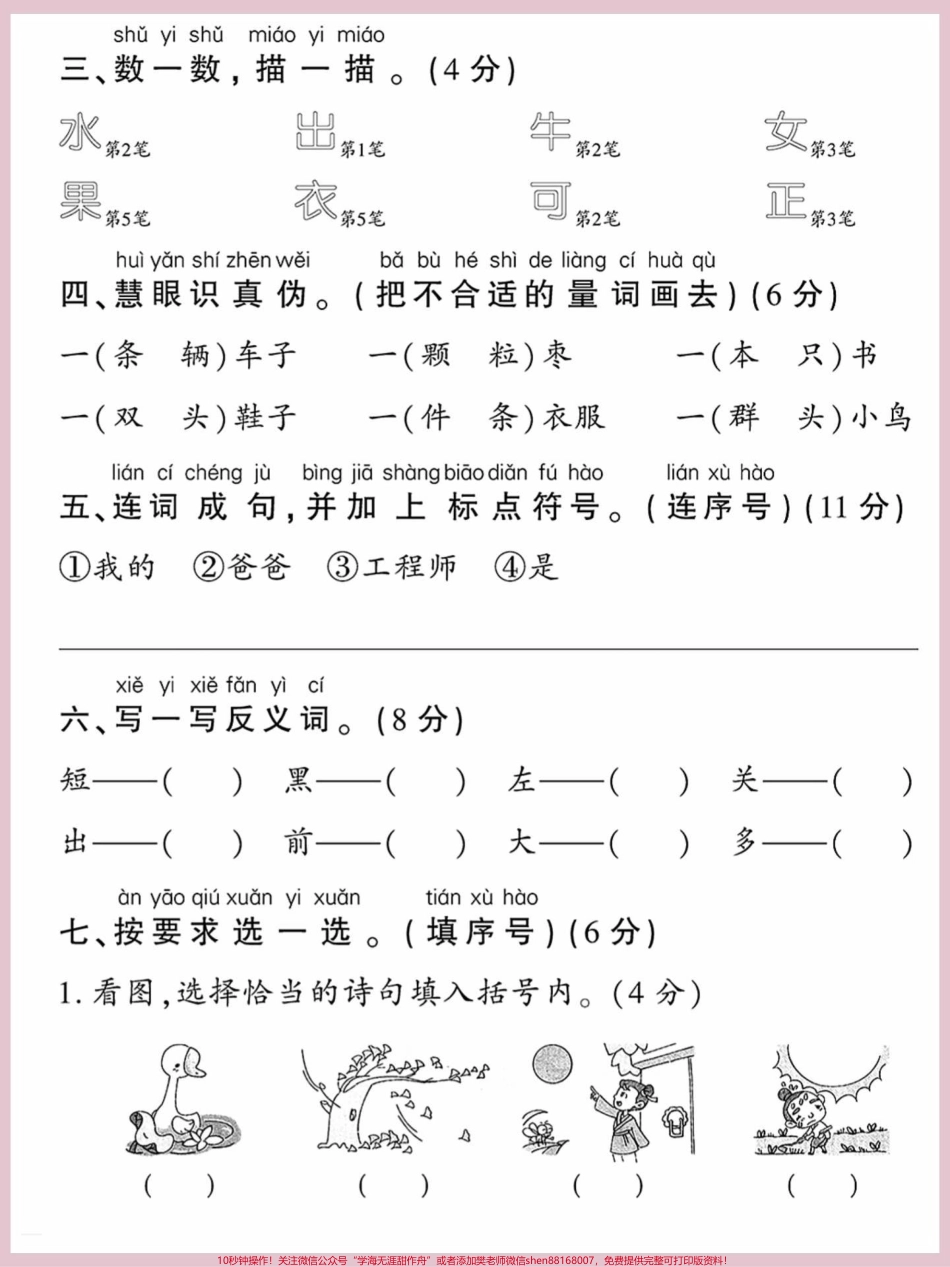 shǔ yi shǔ miáo yi miáo
三、数一数,描一描。(4分)
水第2笔 出第1笔 牛第2笔 女第3笔
果第5笔 衣第5笔 可第2笔 正第3笔
huì yǎn shí zhēn wěi bǎ bù hé shì de liàng cí huà qù
四、慧眼识真伪。(把不合适的量词画去)(6分)
一(条 辆)车子 一(颗 粒)枣 一(本 只)书
一(双 头)鞋子 一(件 条)衣服 一(群 头)小鸟
lián cí chéng jù bìng jiā shàng biāo diǎn fú hào lián xù hào
五、连词成句,并加上标点符号。(连序号)(11分)
①我的 ②爸爸 ③工程师 ④是
xiě yi xiě fǎn yì cí
六、写一写反义词。(8分)
短——( ) 黑——( ) 左——( ) 关——( )
出——( ) 前——( ) 大——( ) 多——( )
àn yāo qiú xuǎn yi xuǎn tián xù hào
七、按要求选一选。(填序号)(6分)
1.看图,选择恰当的诗句填入括号内。(4分)
( ) ( ) ( ) ( )
10秒钟操作！关注微信公众号“学海无涯甜作舟”或者添加樊老师微信shen88168007，免费提供完整可打印版资料！